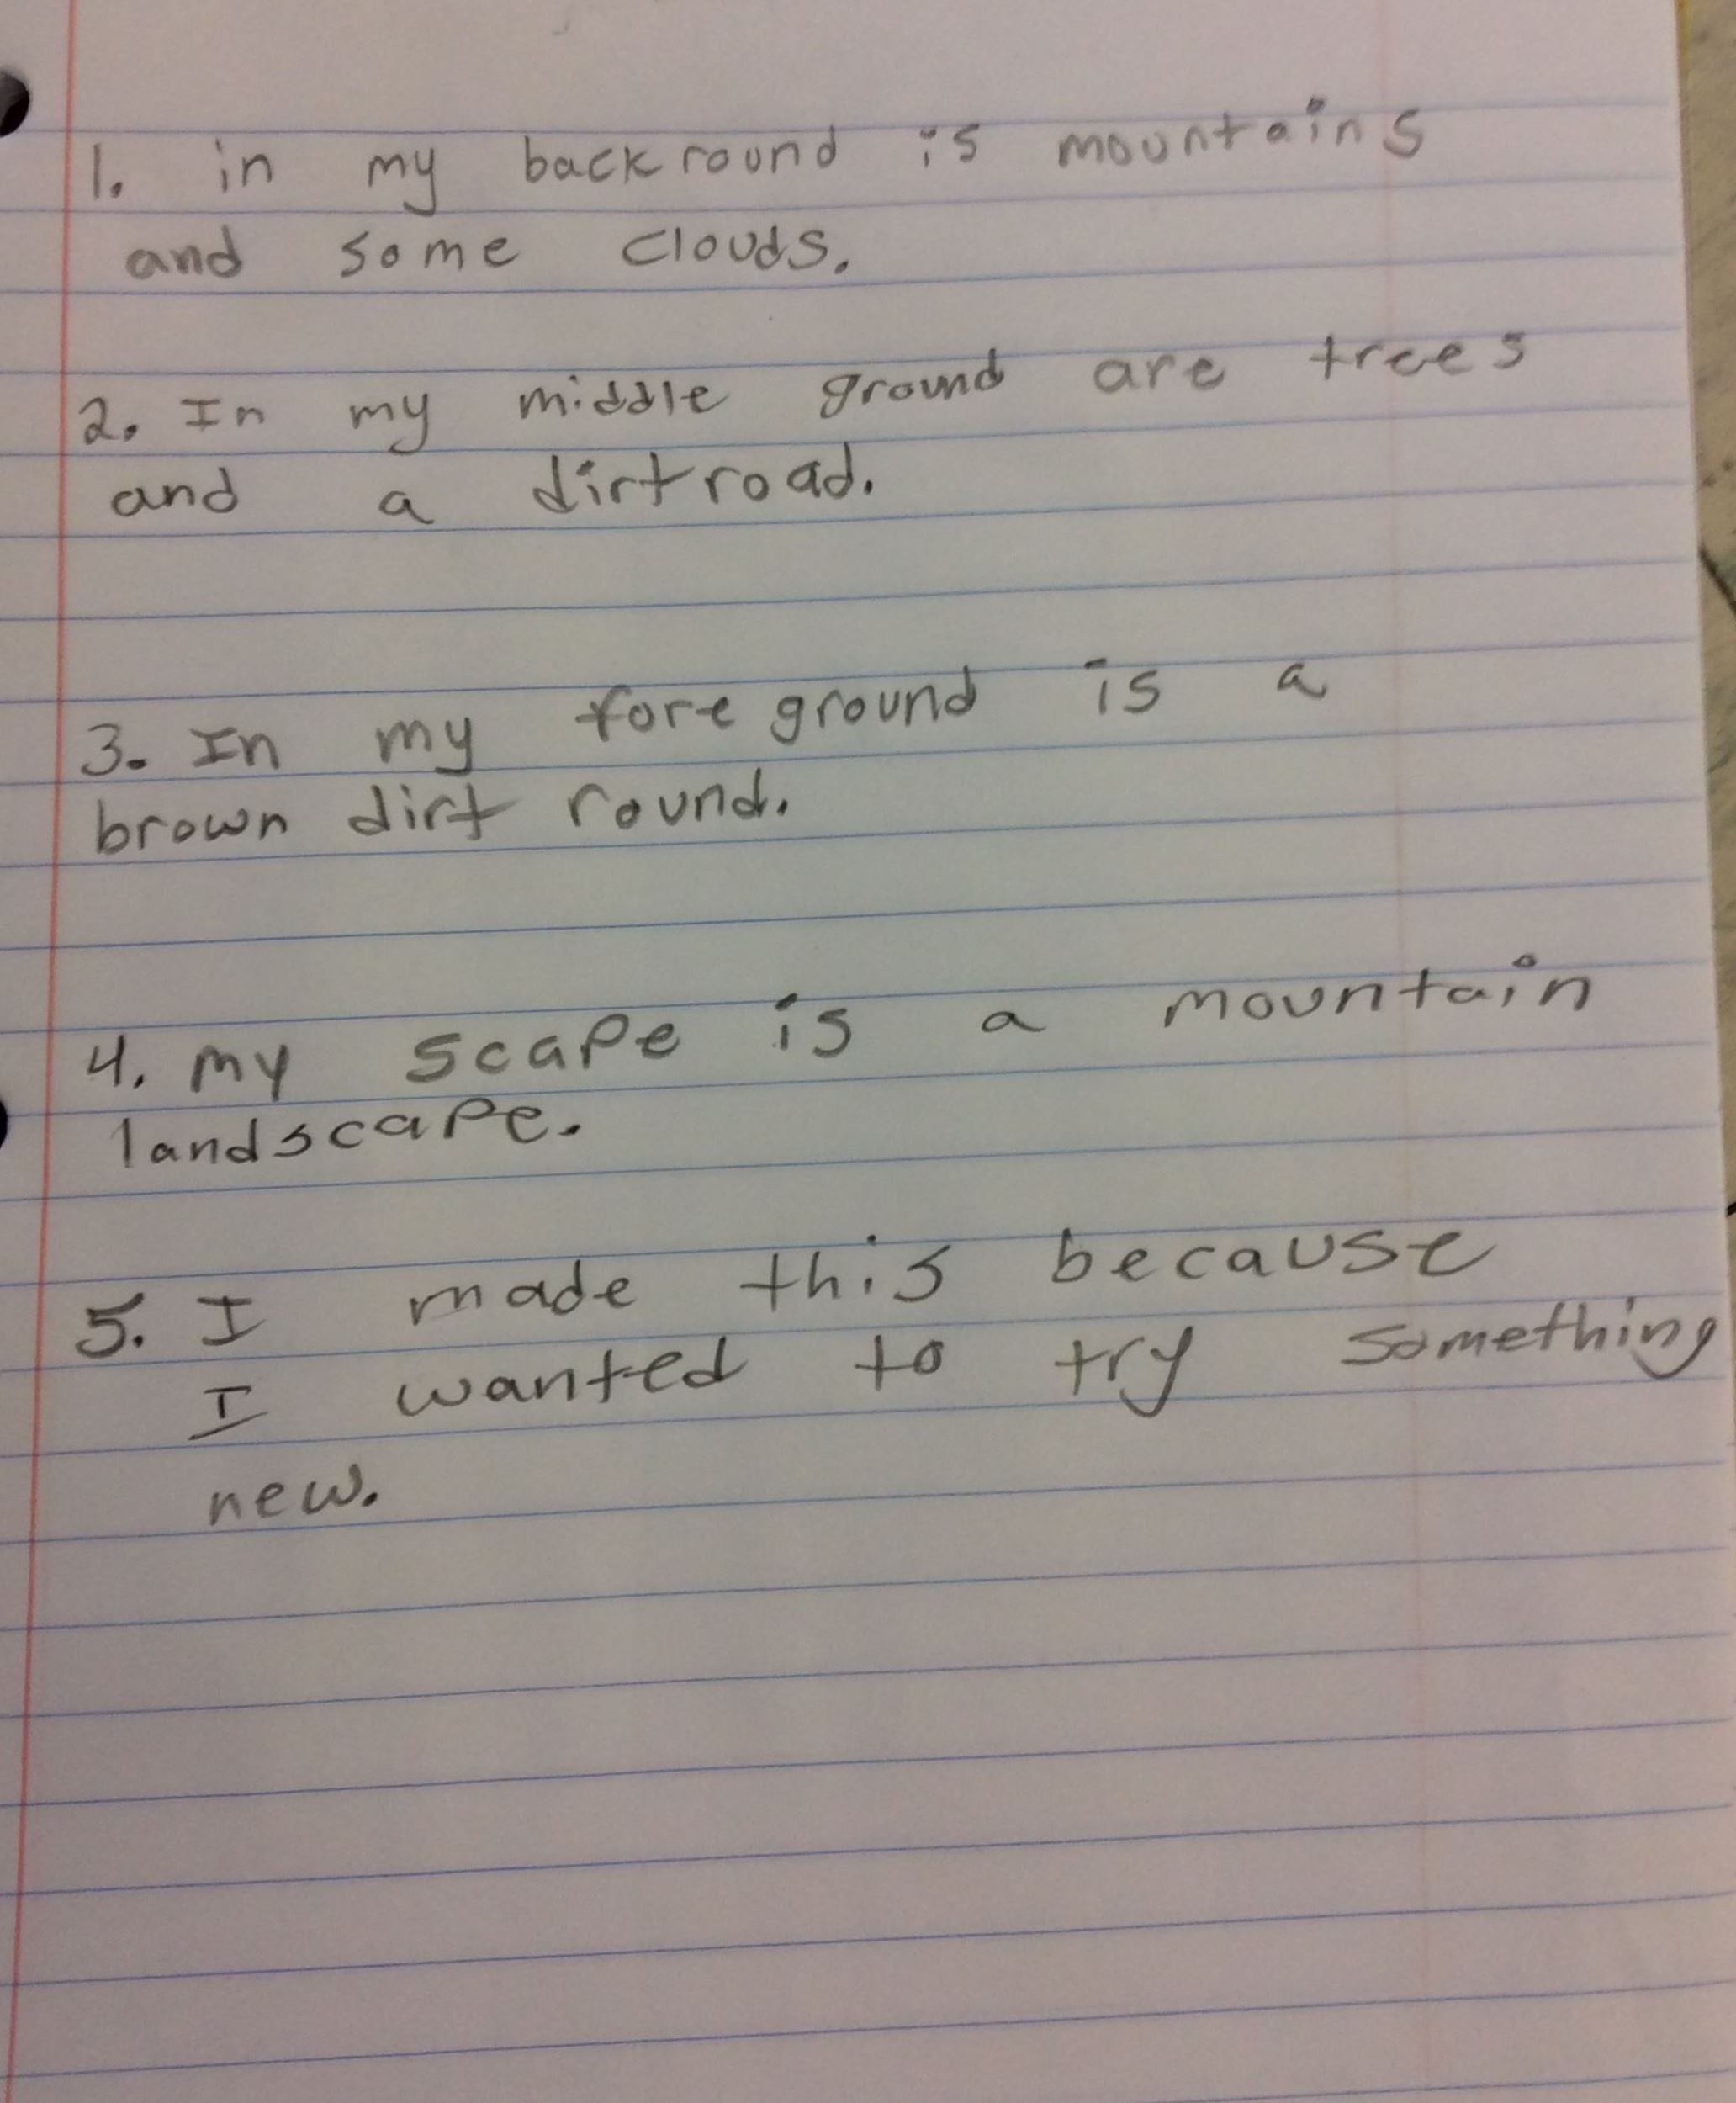 1. in my backround is mountains
and some clouds.
2. In my middle ground are trees
and a dirtroad.
3. In my foreground is a
brown dirt round.
4. my scape is a mountain
landscape.
5. I made this because
I wanted to try something
new.